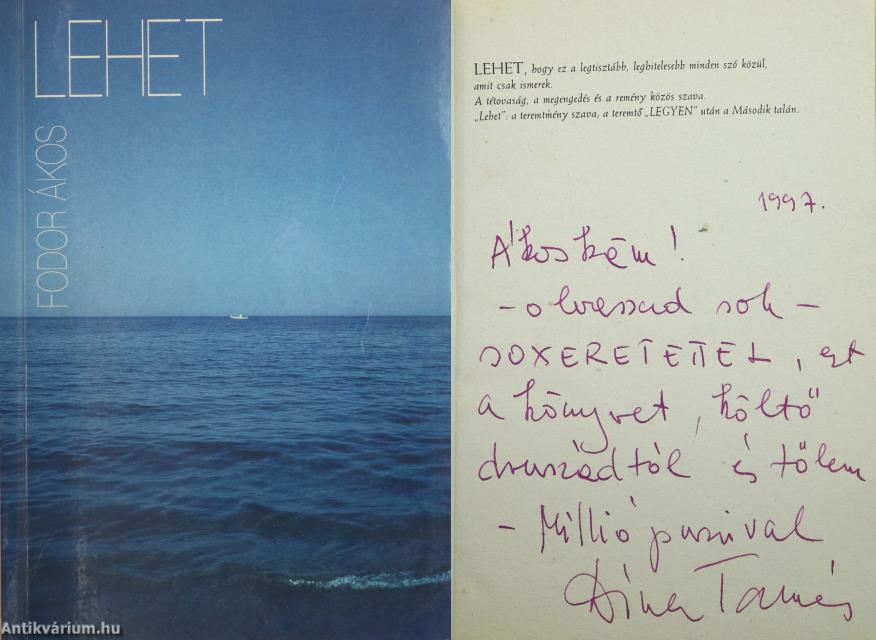 LEHET
FODOR ÁKOS
LEHET, hogy ez a legtisztább, leghitelesebb minden szó közül,
amit csak ismerek.
A tétovaság, a megengedés és a remény közös szava.
„Lehet”: a teremtmény szava; a teremtő „LEGYEN” után a Második talán.
1997.
Ákoskám!
- olvassad sok -
SOXERETETTEL, ezt
a könyvet, költő
druszádtól és tőlem
- Millió puszival
Tamás
Antikvárium.hu